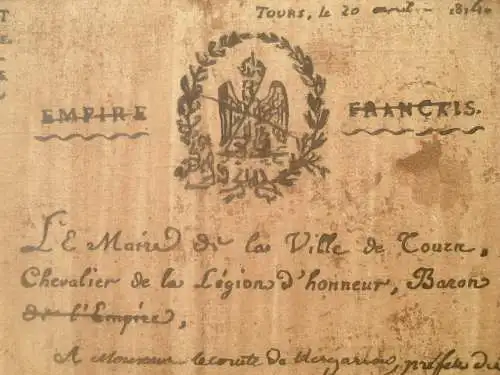 TOURS, le 20 avril - 1814.
EMPIRE FRANCAIS.
Le Maire de la Ville de Tours,
Chevalier de la Légion d'honneur, Baron
de l'Empire,
A Monsieur le comte de